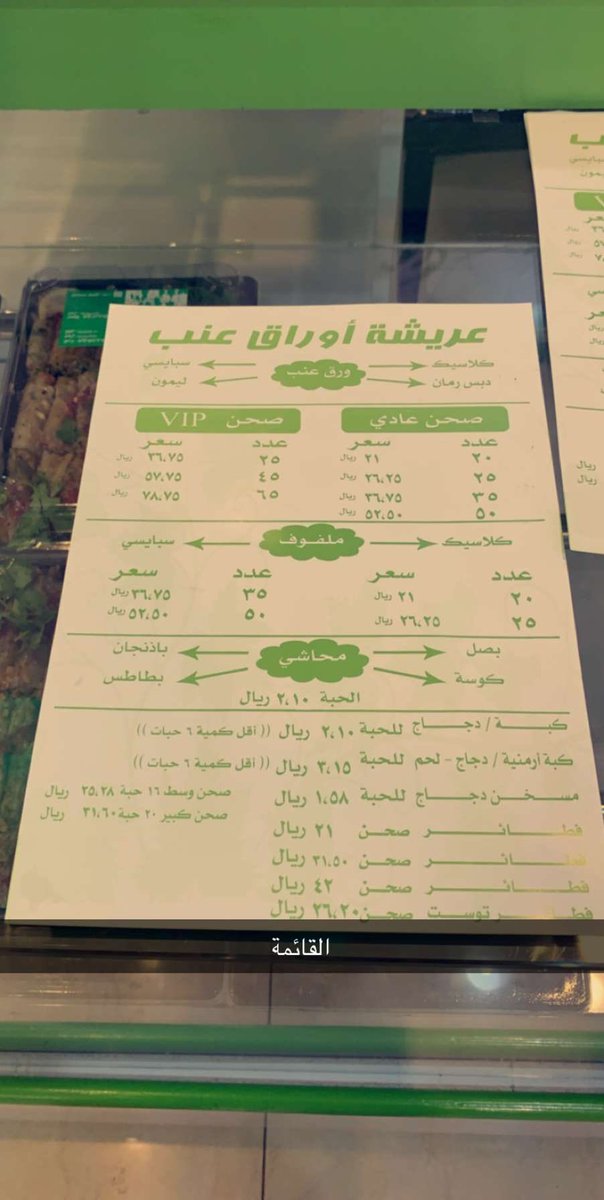 عريشة أوراق عنب
كلاسيك ورق عنب سبايسي
دبس رمان ليمون
صحن عادي صحن VIP
عدد سعر عدد سعر
٢٠ ٢١ ريال ٢٥ ٣٦،٧٥ ريال
٢٥ ٢٦،٢٥ ريال ٤٥ ٥٧،٧٥ ريال
٣٥ ٣٦،٧٥ ريال ٦٥ ٧٨،٧٥ ريال
٥٠ ٥٢،٥٠ ريال
كلاسيك ملفوف سبايسي
عدد سعر عدد سعر
٢٠ ٢١ ريال ٣٥ ٣٦،٧٥ ريال
٢٥ ٢٦،٢٥ ريال ٥٠ ٥٢،٥٠ ريال
بصل محاشي باذنجان
كوسة بطاطس
الحبة ٢،١٠ ريال
كبة / دجاج للحبة ٢،١٠ ريال (( أقل كمية ٦ حبات ))
كبة أرمنية / دجاج - لحم للحبة ٣،١٥ ريال (( أقل كمية ٦ حبات ))
مسخن دجاج للحبة ١،٥٨ ريال صحن وسط ١٦ حبة ٢٥،٢٨ ريال
صحن كبير ٢٠ حبة ٣١،٦٠ ريال
فطائر صحن ٢١ ريال
فطائر صحن ٣١،٥٠ ريال
فطائر صحن ٤٢ ريال
فطائر توست صحن ٢٦،٢٠ ريال
القائمة